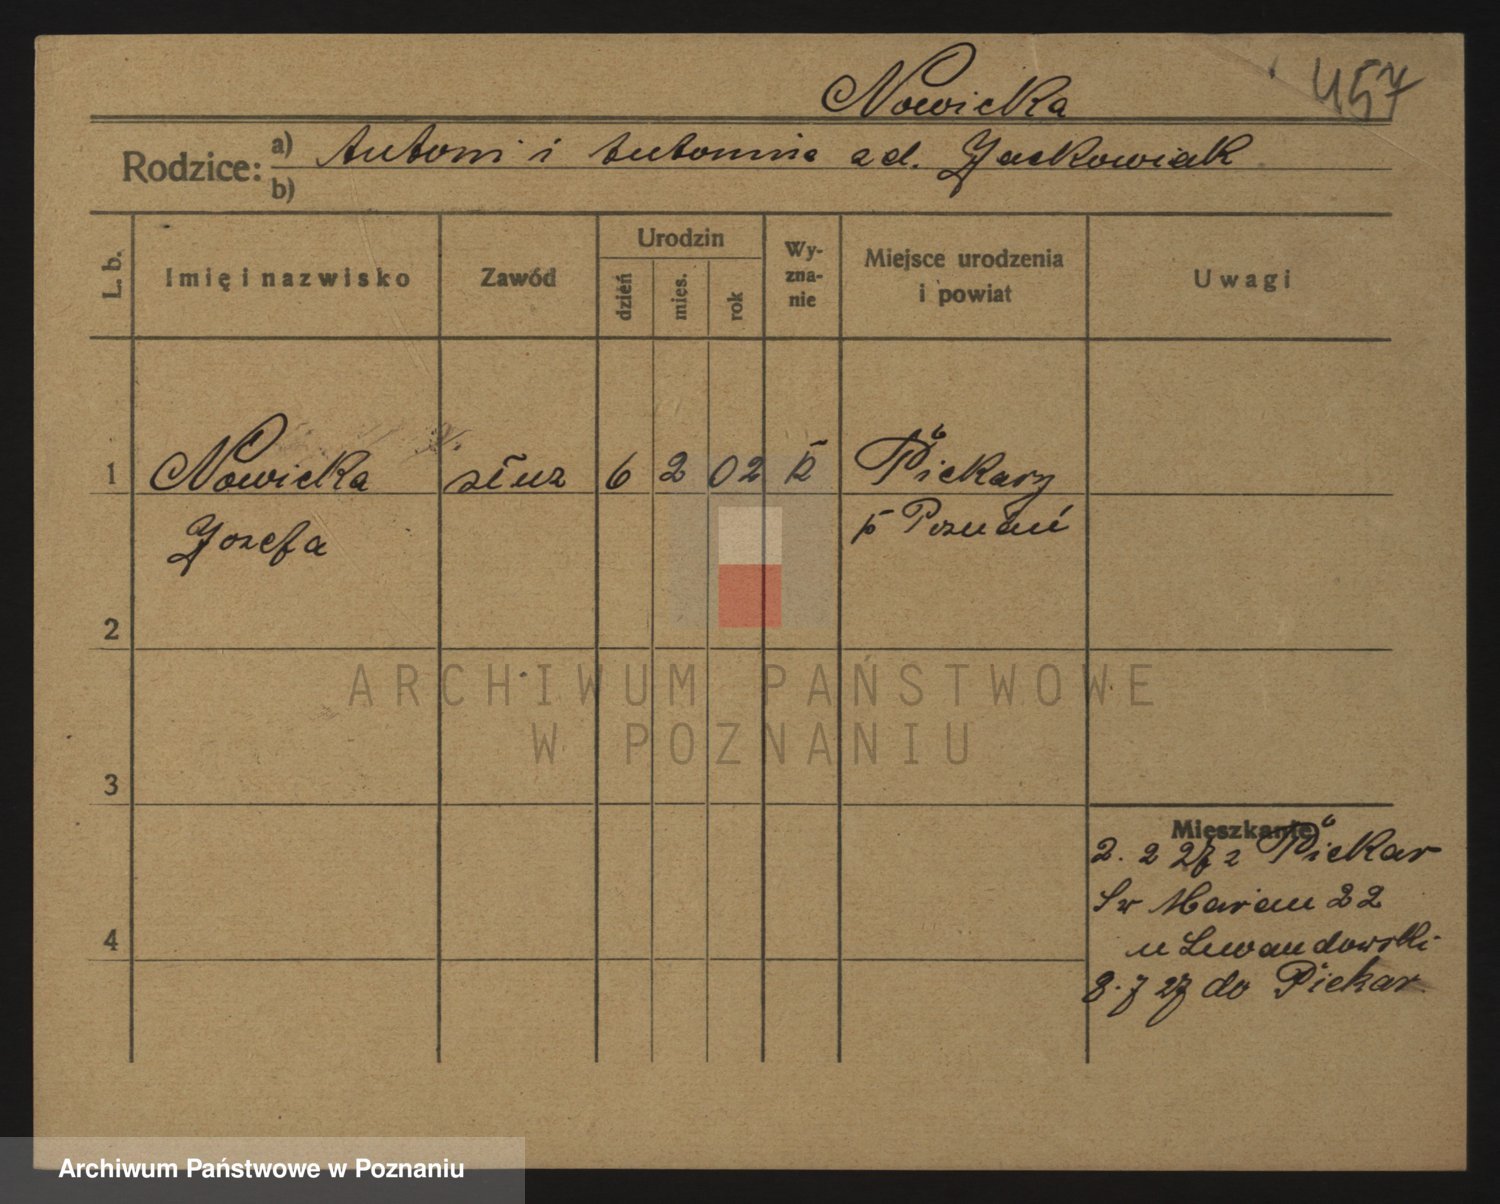 Nowicka
457
Rodzice: a) Antoni i Antonina z d. Jackowiak
b)
L. b.
Imię i nazwisko
Zawód
Urodzin
dzień
mies.
rok
Wy-
zna-
nie
Miejsce urodzenia
i powiat
Uwagi
1 Nowicka służ 6 2 02 k Piekary
Jozefa p Poznań
2
3
4
Mieszkanie
2. 2 27 z Piekar
Św Marcin 22
u Lewandowski
8. 7 27 do Piekar.
ARCHIWUM PAŃSTWOWE
W POZNANIU
Archiwum Państwowe w Poznaniu